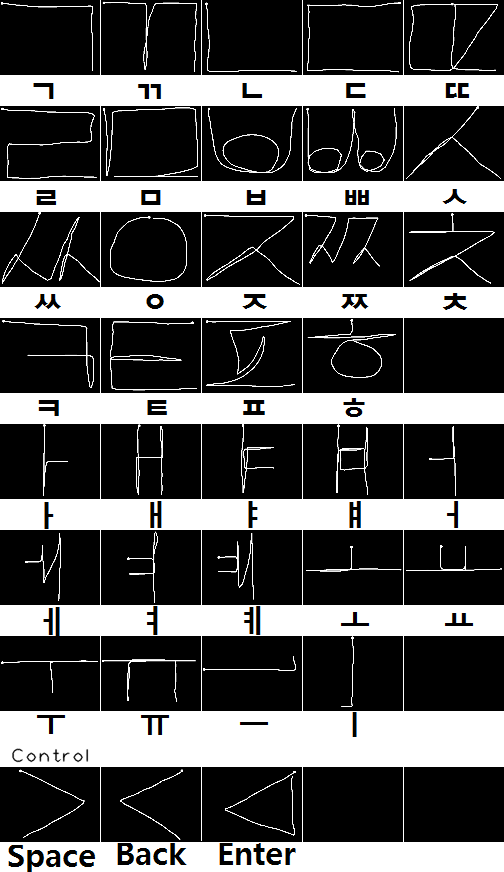 ㄱ ㄲ ㄴ ㄷ ㄸ
ㄹ ㅁ ㅂ ㅃ ㅅ
ㅆ ㅇ ㅈ ㅉ ㅊ
ㅋ ㅌ ㅍ ㅎ
ㅏ ㅐ ㅑ ㅒ ㅓ
ㅔ ㅕ ㅖ ㅗ ㅛ
ㅜ ㅠ ㅡ ㅣ
Control
Space Back Enter